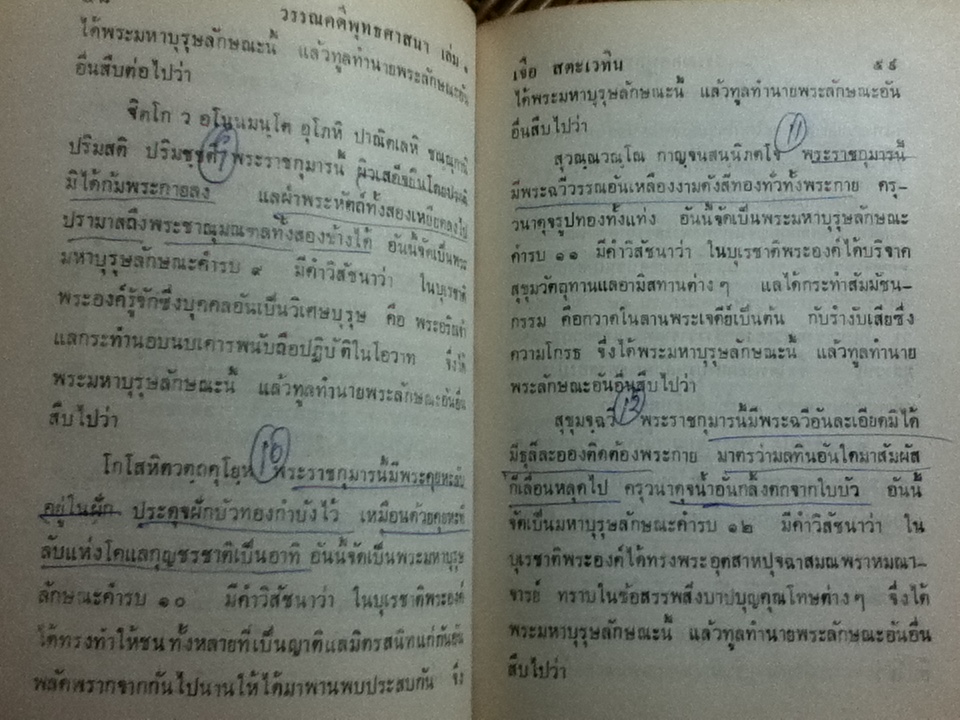 วรรณคดีพุทธศาสนา เล่ม ๑
ได้พระมหาบุรุษลักษณะนี้ แล้วทูลทำนายพระลักษณะอัน
อื่นสืบต่อไปว่า
ฐิตโก ว อโนนมนฺโต อุโภหิ ปาณิตเลหิ ชณฺณุกานิ
ปริมสติ ปริมชฺชติ พระราชกุมารนี้ ผิวเสด็จยืนโดยปรกติ
มิได้ก้มพระกายลง แลฝ่าพระหัตถ์ทั้งสองเหยียดลงไป
ปรามาสถึงพระชาณุมณฑลทั้งสองข้างได้ อันนี้จัดเป็นพระ
มหาบุรุษลักษณะคำรบ ๙ มีคำวิสัชนาว่า ในบุเรชาติ
พระองค์รู้จักซึ่งบุคคลอันเป็นวิเศษบุรุษ คือ พระอริยเจ้า
แลกระทำนอบนบเคารพนับถือปฏิบัติในโอวาท จึ่งได้
พระมหาบุรุษลักษณะนี้ แล้วทูลทำนายพระลักษณะอันอื่น
สืบไปว่า
10
โกโสหิตวตฺถคุโยฺห พระราชกุมารนี้มีพระคุยหะลับ
อยู่ในฝัก ประดุจฝักบัวทองกำบังไว้ เหมือนด้วยคุยหะที่
ลับแห่งโคแลกุญชรชาติเป็นอาทิ อันนี้จัดเป็นพระมหาบุรุษ
ลักษณะคำรบ ๑๐ มีคำวิสัชนาว่า ในบุเรชาติพระองค์
ได้ทรงทำให้ชนทั้งหลายที่เป็นญาติแลมิตรสนิทแก่กันอัน
พลัดพรากจากกันไปนานให้ได้มาพานพบประสบกัน จึ่ง
เจือ สตะเวทิน ๕๙
ได้พระมหาบุรุษลักษณะนี้ แล้วทูลทำนายพระลักษณะอัน
อื่นสืบไปว่า
11
สุวณฺณวณฺโณ กาญฺจนสนฺนิภตฺโจ พระราชกุมารนี้
มีพระฉวีวรรณอันเหลืองงามดังสีทองทั่วทั้งพระกาย ครุ-
วนาดุจรูปทองทั้งแท่ง อันนี้จัดเป็นพระมหาบุรุษลักษณะ
คำรบ ๑๑ มีคำวิสัชนาว่า ในบุเรชาติพระองค์ได้บริจาค
สุขุมวัตถุทานแลอามิสทานต่างๆ แลได้กระทำสัมมัชน-
กรรม คือกวาดในลานพระเจดีย์เป็นต้น กับรำงับเสียซึ่ง
ความโกรธ จึ่งได้พระมหาบุรุษลักษณะนี้ แล้วทูลทำนาย
พระลักษณะอันอื่นสืบไปว่า
12
สุขุมจฺฉวี พระราชกุมารนี้มีพระฉวีอันละเอียดมิได้
มีธุลีละอองติดต้องพระกาย มาตรว่ามลทินอันใดมาสัมผัส
ก็เลื่อนหลุดไป ครุวนาดุจน้ำอันกลิ้งตกจากใบบัว อันนี้
จัดเป็นมหาบุรุษลักษณะคำรบ ๑๒ มีคำวิสัชนาว่า ใน
บุเรชาติพระองค์ได้ทรงพระอุตสาหปุจฉาสมณพราหมณา-
จารย์ ทราบในข้อสรรพสิ่งบาปบุญคุณโทษต่างๆ จึ่งได้
พระมหาบุรุษลักษณะนี้ แล้วทูลทำนายพระลักษณะอันอื่น
สืบไปว่า